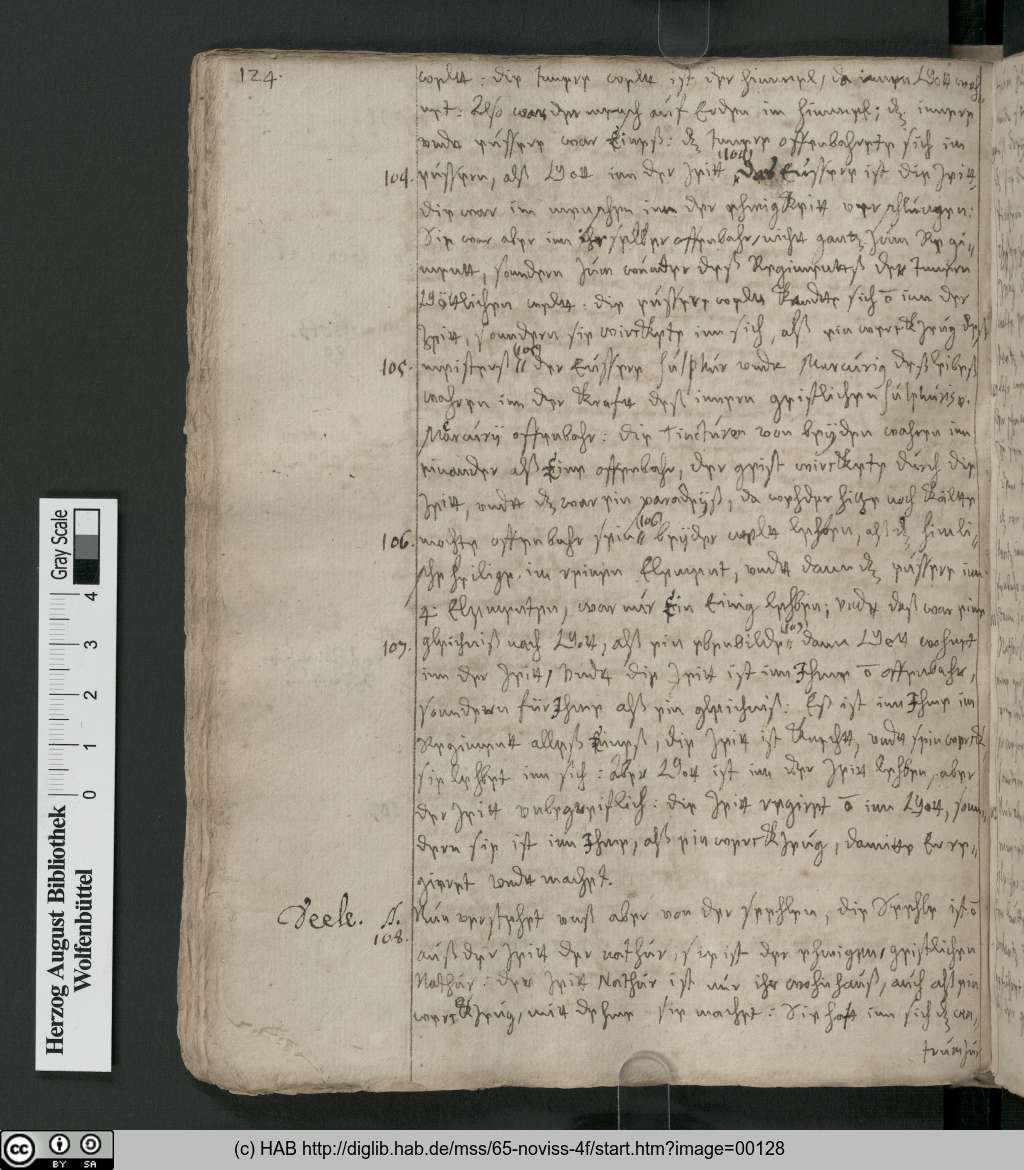 124.
weltt: die Innere weltt ist der himmel, da innen Gott woh-
net: Also war der mensch auf Erden im himmel; dz innere
undt eüssere war Eineß: dz Innere offenbahrete sich im
104. eüssern, alß Gott inn der Zeitt (104) Das Eüssere ist die Zeitt,
die war im menschen inn der ehwigkeitt verschlungen:
Sie war aber inn ihr selber offenbahr, nicht gantz zum Regi-
mentt, sondern zum wunder deß Regimentteß der Innern
Göttlichen weltt: die eüssere weltt kandte sich ō inn der
Zeitt, sondern sie wirckete inn sich, alß ein werckzeüg deß
105. meisterß (105) der Eüssere Sulphur undt Mercurig deß leibeß
wahren inn der krafft deß innern geistlichen Sulphuris v.
Mercurij offenbahr: die Tincturen von beijden wahren inn
einander alß Eine offenbahr, der geist wirckete durch die
Zeitt, undt dz war ein paradeijß, da wehder hitze noch kälte
106. mochte offenbahr sein (106) beijder weltt lehben, alß dz himli-
sche heilige im reinen Element, undt dann dz eüssere inn
4. Elementen, war nur Ein Einig lehben; undt daß war eine
107. gleichniß nach Gott, alß ein ebenbilde (107) dann Gott wohnet
inn der Zeitt, Undt die Zeitt ist inn Ihme ō offenbahr,
sondern für Ihme alß ein gleichniß: Eß ist inn Ihme im
Regimentt alleß Eineß, die Zeitt ist knecht, undt sein werck
sie lehbet inn sich: aber Gott ist inn der Zeitt lehben, aber
der Zeitt unbegreiflich: die Zeitt regiret ō inn Gott, son-
dern sie ist inn Ihme, alß ein werckzeüg, damitte Er re-
gieret undt machet.
Seele. N. Nun verstehet unß aber von der seehlen, die Seehle ist ō
108. auß der Zeitt der nathur, sie ist der ehwigen geistlichen
Nathur: der Zeitt Nathur ist nur ihr wohnhauß, auch alß ein
werckzeüg, mitt dehme sie machet: Sie hatt inn sich dz cen-
trum zur
Herzog August Bibliothek
Wolfenbüttel
0 1 2 3 4
Gray Scale
BY SA
(c) HAB http://diglib.hab.de/mss/65-noviss-4f/start.htm?image=00128